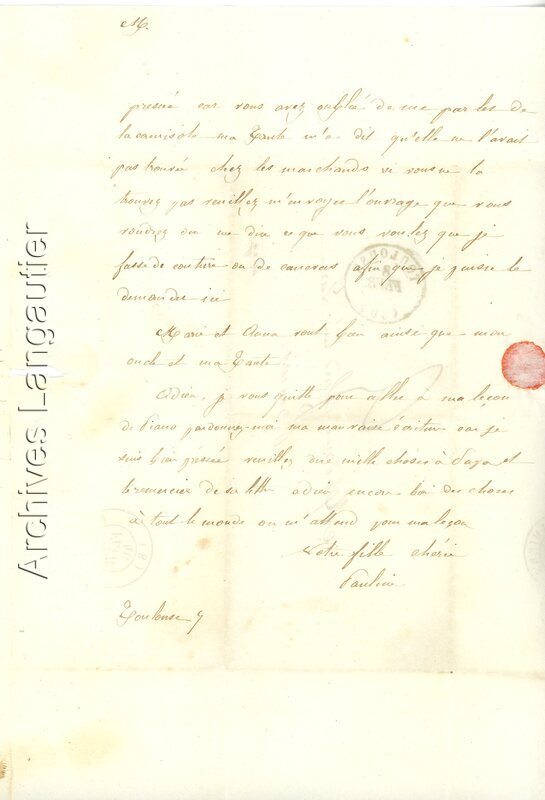 M.
pressée car vous avez oublié de me parler de
la camisole ma Tante m'a dit qu'elle ne l'avait
pas trouvée chez les marchands si vous ne la
trouvez pas veuillez m'envoyer l'ouvrage que vous
voudrez ou me dire ce que vous voulez que je
fasse de couture ou de canevas afin que je puisse le
demander ici
Marie et Anna vont bien ainsi que mon
oncle et ma Tante
Adieu, je vous quitte pour aller à ma leçon
de Piano pardonnez-moi ma mauvaise écriture car je
suis bien pressée veuillez dire mille choses à Papa et
le remercier de sa lettre adieu encore bien des choses
à tout le monde on m'attend pour ma leçon
Votre fille chérie
Pauline
Toulouse 7
Archives Langautier